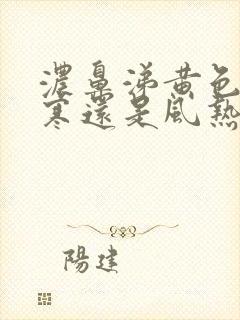 濃鼻涕黄色
寒還是風熱
陽建